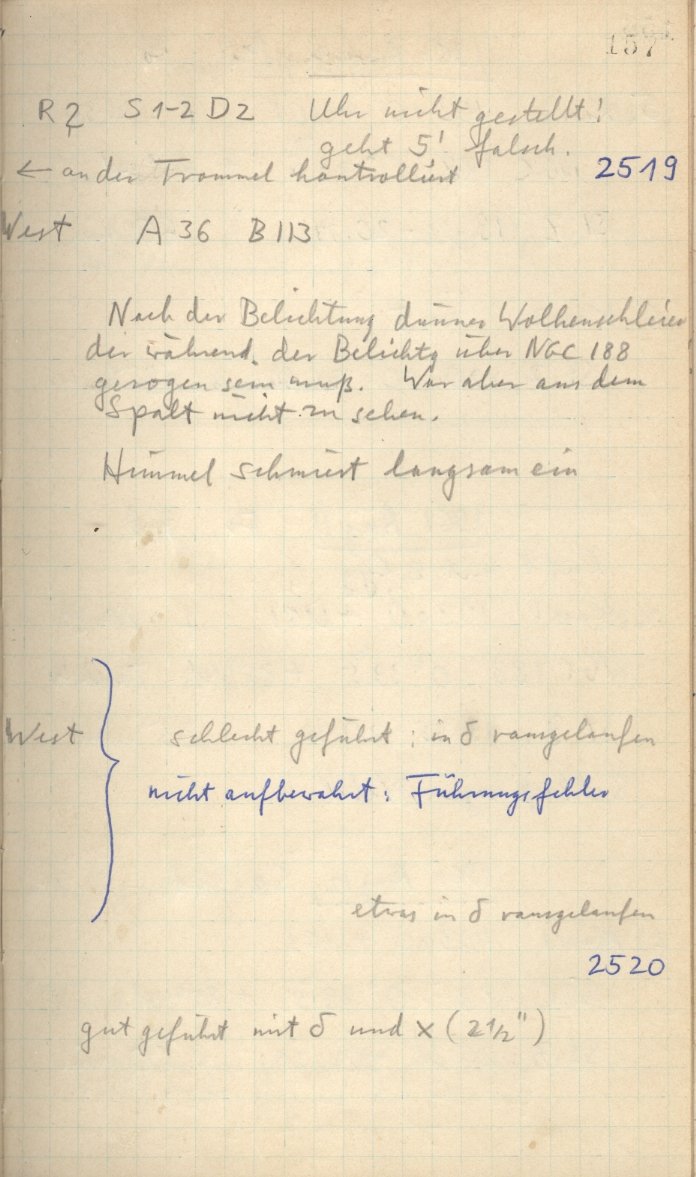 157
R2 S 1-2 D2 Uhr nicht gestellt!
geht 5' falsch.
← an der Trommel kontrolliert 2519
West A 36 B 113
Nach der Belichtung dünner Wolkenschleier
der während der Belichtg über NGC 188
gezogen sein muß. War aber aus dem
Spalt nicht zu sehen.
Himmel schmiert langsam ein
West schlecht geführt: in δ rausgelaufen
nicht aufbewahrt: Führungsfehler
etwas in δ rausgelaufen
2520
gut geführt mit δ und × (2 1/2")